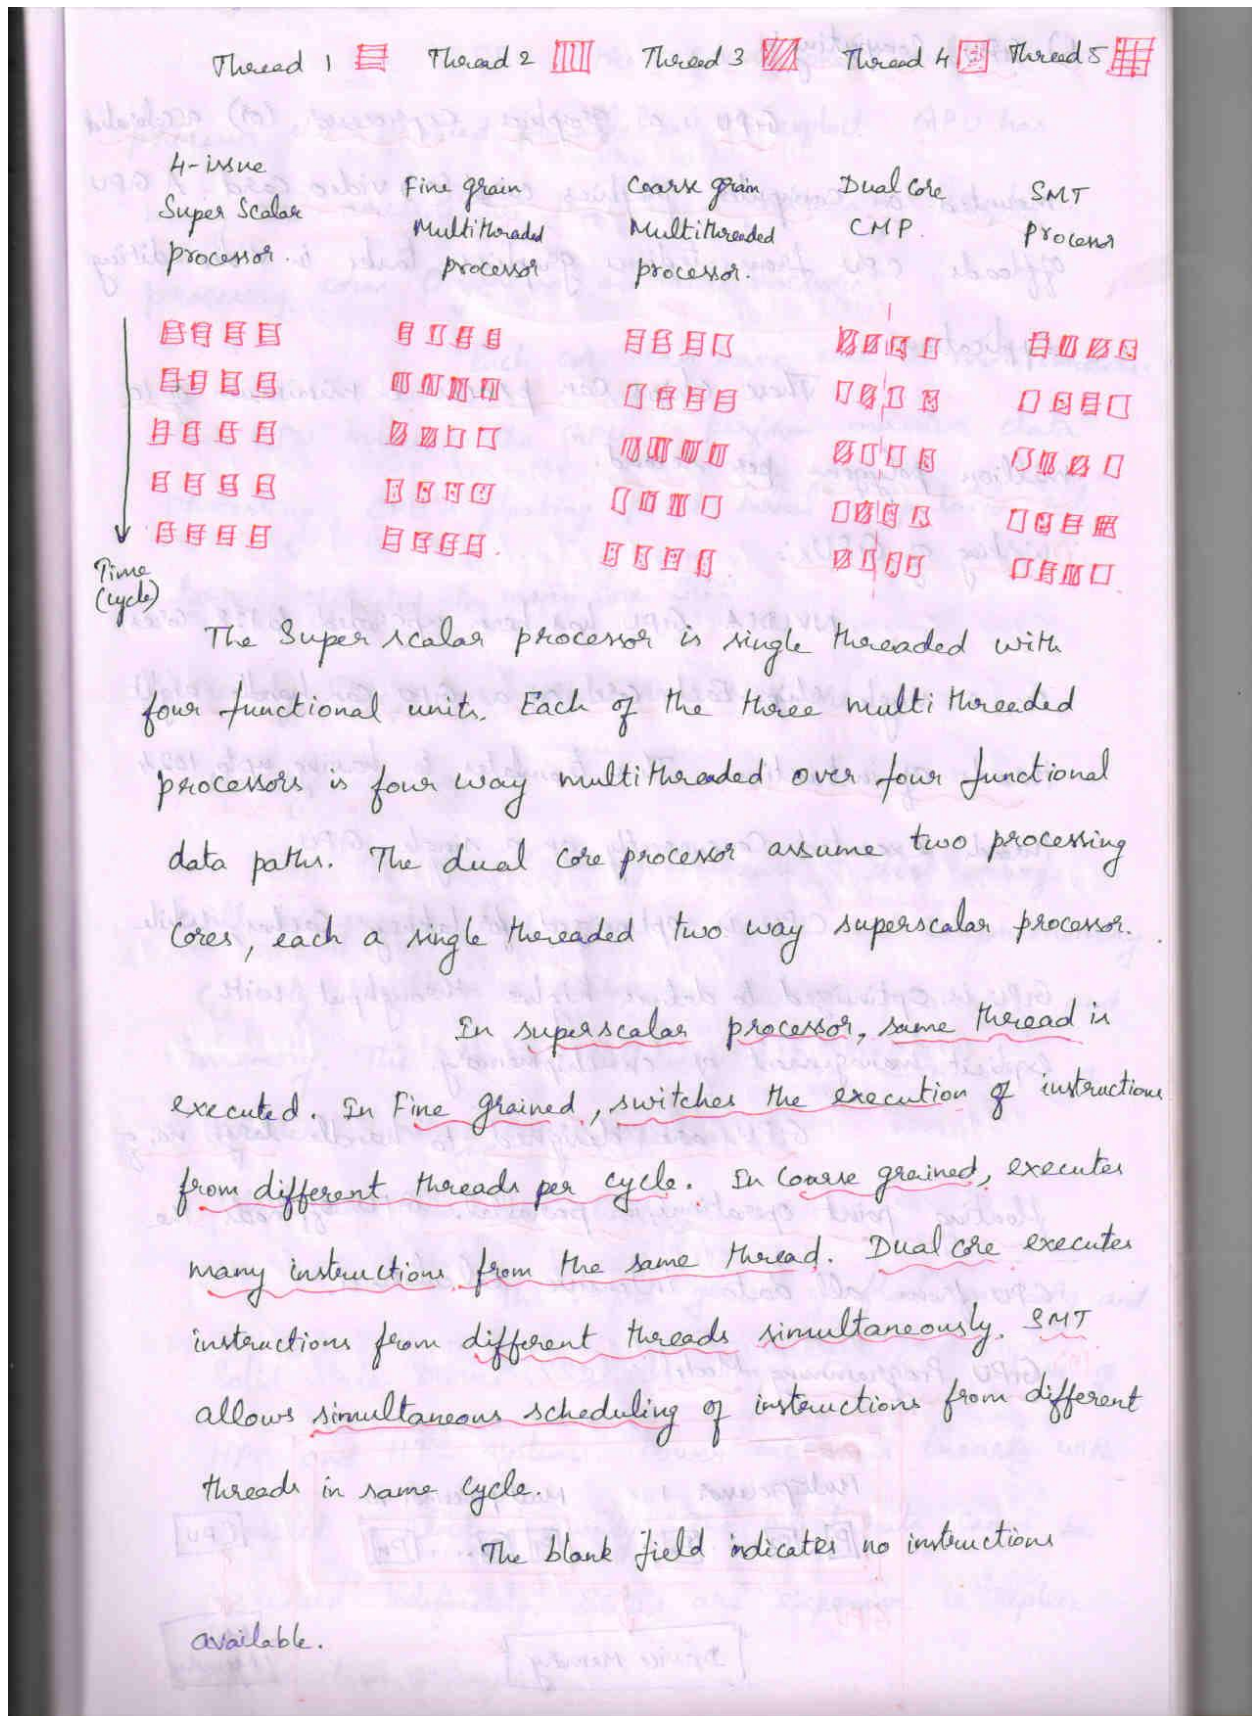 Thread 1 Thread 2 Thread 3 Thread 4 Thread 5
4-issue
Super Scalar
processor.
Fine grain
Multithraded
processor
Coarse grain
Multithreaded
processor.
Dual Core
CMP.
SMT
Processor
Time
(cycle)
The Super scalar processor is single threaded with
four functional units. Each of the three multi threaded
processors is four way multithreaded over four functional
data paths. The dual core processor assume two processing
Cores, each a single threaded two way superscalar processor.
In superscalar processor, same thread is
executed. In Fine grained, switches the execution of instructions
from different threads per cycle. In Coarse grained, executes
many instructions from the same thread. Dual core executes
instructions from different threads simultaneously. SMT
allows simultaneous scheduling of instructions from different
threads in same cycle.
The blank field indicates no instructions
available.